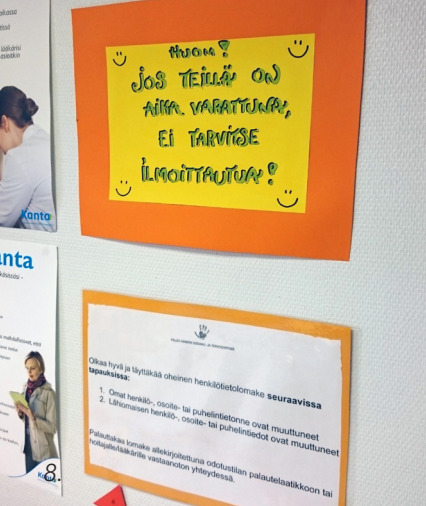 HUOM!
JOS TEILLÄ ON
AIKA VARATTUNA,
EI TARVITSE
ILMOITTAUTUA!
Kanta
anta
Kanta
8.
Olkaa hyvä ja täyttäkää oheinen henkilötietolomake seuraavissa
tapauksissa:
1. Omat henkilö-, osoite- tai puhelintietonne ovat muuttuneet
2. Lähiomaisen henkilö-, osoite- tai puhelintiedot ovat muuttuneet
Palauttakaa lomake allekirjoitettuna odotustilan palautelaatikkoon tai
hoitajalle/lääkärille vastaanoton yhteydessä.